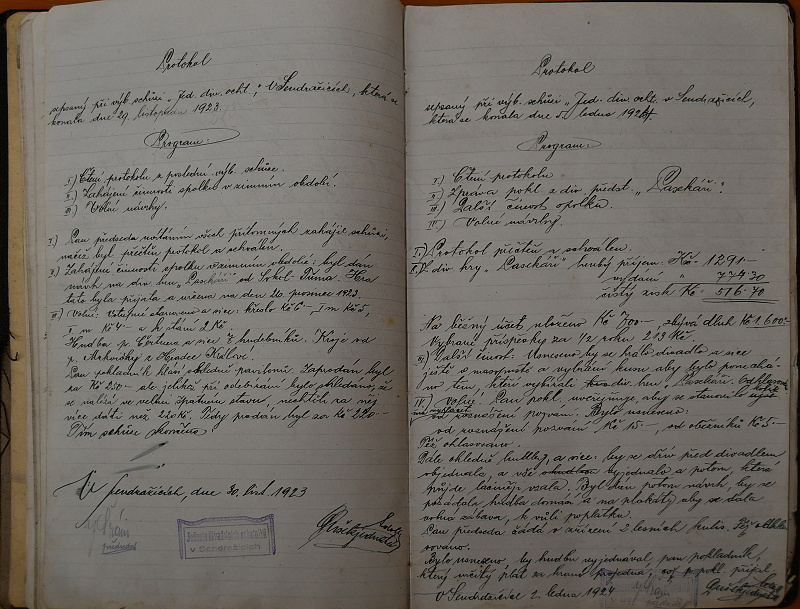 Protokol
sepsaný při výb. schůzi „Jed. div. ocht." v Sendražicích, která se
konala dne 29. listopadu 1923.
Program:
I.) Čtení protokolu z poslední výb. schůze.
II.) Zahájení činnosti spolku v zimním období.
III.) Volné návrhy.
I.) Pan předseda uvítáním všech přítomných zahájil schůzi,
načež byl přečten protokol a schválen.
II.) Zahájení činnosti spolku v zimním období: byl dán
návrh na div. hru „Paschéři" od Sokol Tůma. Hra
tato byla přijata a určena na den 26. prosince 1923.
III.) Volné: Vstupné stanoveno a sice: křeslo Kč 6·– I. m Kč 5,
II. m Kč 4·– a k stání 2 Kč
Hudba p. Černína a sice 8 hudebníků. Kroje od
p. Mrkvičky z Hradce Králové.
Pan pokladník hlásí ohledně pavilonu. Zaprodán byl
za Kč 250·– ale jelikož při odebírání bylo shledáno, že
se nalézá ve velmi špatném stavu, nechtěl za něj
více dáti než 220 Kč. Tedy prodán byl za Kč 220·–
Tím schůze skončena
V Sendražicích, dne 30. list. 1923
předseda
Jednota divadelních ochotníků
v Sendražicích
jednatel
Protokol
sepsaný při výb. schůzi „Jed. div. ocht. v Sendražicích,
která se konala dne 5. ledna 1924.
Program:
I.) Čtení protokolu
II.) Zpráva pokl. z div. předst. „Paschéři".
III.) Další činnost spolku.
IV.) Volné návrhy.
I.) Protokol přečten a schválen.
II.) Z div. hry „Paschéři" hrubý příjem: Kč 1291·–
vydání „ 774·30
čistý zisk Kč 516·70
Na běžný účet uloženo Kč 700·–, zbývá dluh Kč 1.600·–
Vybrané příspěvky za 1/2 roku 213 Kč.
III.) Další činnost: Usneseno by se hrálo divadlo a sice
ještě v masopustě a vybrání kusu aby bylo ponecháno
těm, kteří vybírali div. hru „Paschéři. Odhlasováno
IV.) Volné: Pan pokl. navrhuje, aby se stanovilo
za roznášení pozvání. Bylo usneseno:
od roznášení pozvání Kč 15·–, od oběrníků Kč 5·–
Též ohlasováno.
Dále ohledně hudby, a sice: by se dřív před divadlem
objednala, a vše vyjednalo a potom, která
půjde laciněji vzata. Byl dán potom návrh, by se
požádala hudba domácí a na plakáty aby se dala
volná zábava, k vůli poplatku.
Pan předseda žádá o zřízení 2 lesních kulis. Též odhlasováno.
Bylo usneseno by hudbu vyjednával pan pokladník,
který určitý plat za hraní což p. pokl. přijal
V Sendražicích 2. ledna 1924